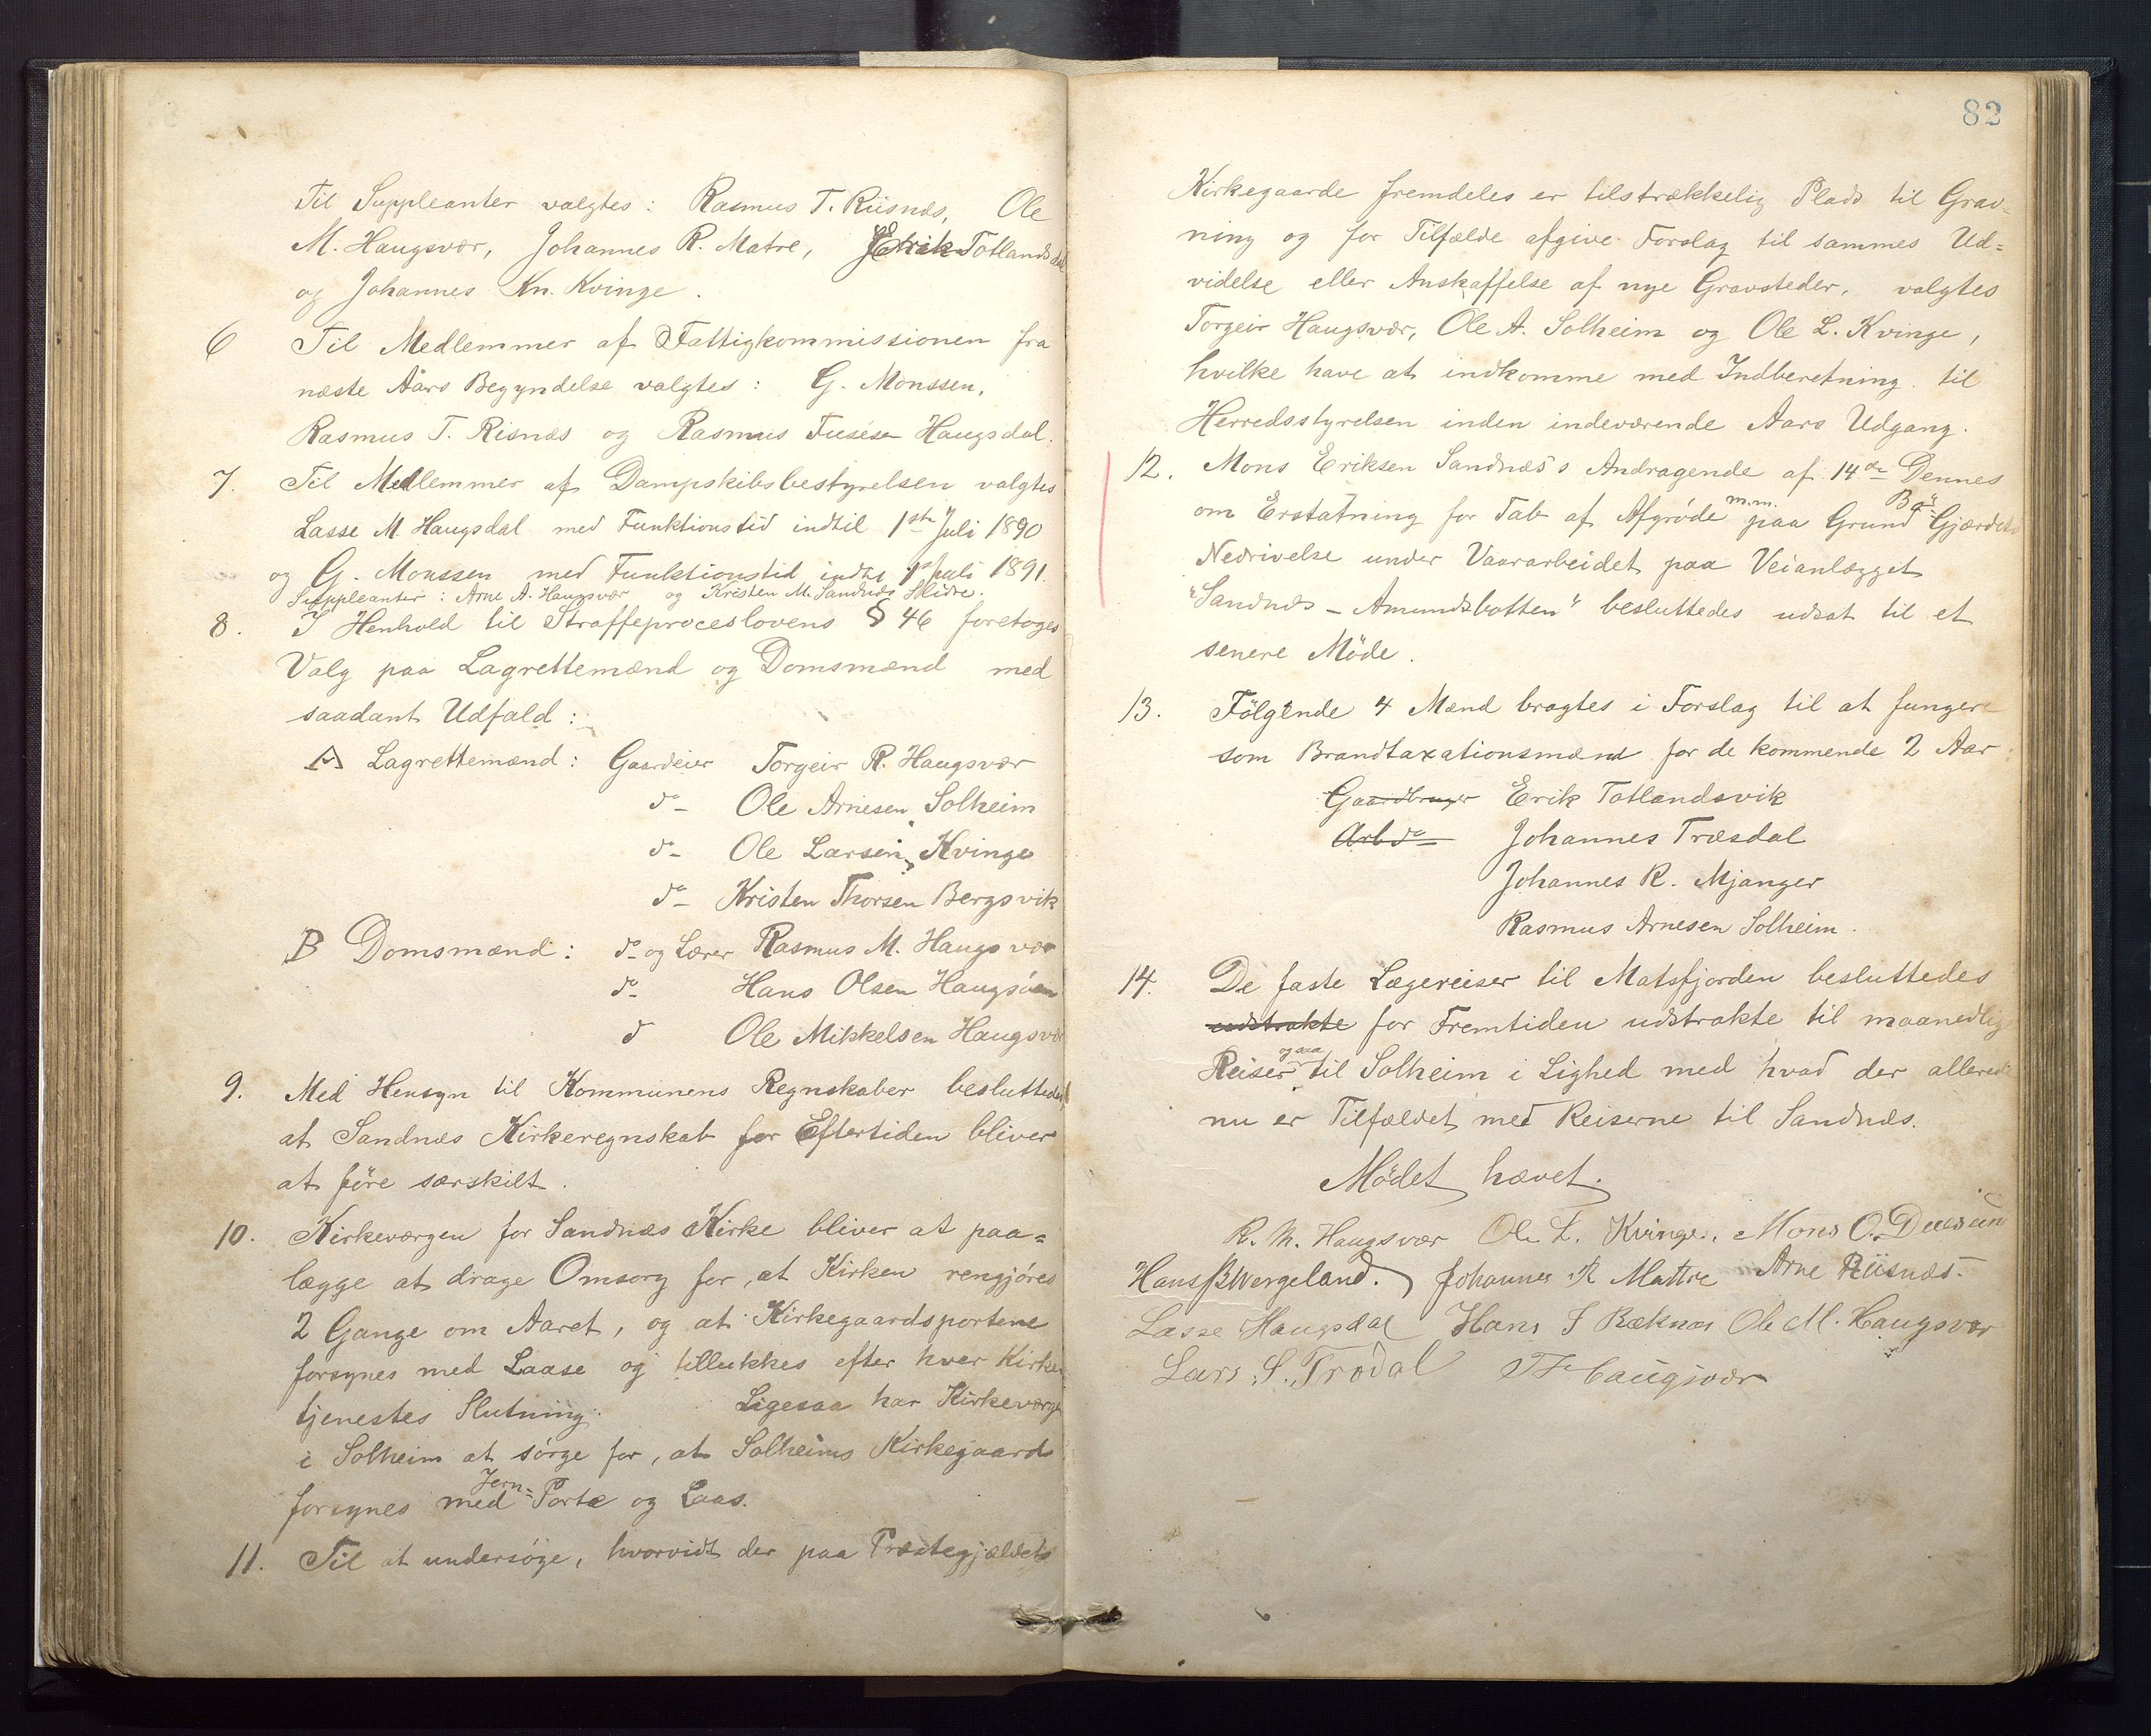 Til Suppleanter valgtes: Rasmus T. Riisnæs, Ole
M. Haugsvær, Johannes R. Matre, Erik Totlandsdal
og Johannes Kn. Kvinge.
6 Til Medlemmer af Fattigkommissionen fra
næste Aars Begyndelse valgtes: G. Monssen,
Rasmus T. Risnæs og Rasmus Haugsdal.
7. Til Medlemmer af Dampskibsbestyrelsen valgtes
Lasse M Haugsdal med Funktionstid indtil 1ste Juli 1890
og G. Monssen med Funktionstid indtil 1st Juli 1891.
Suppleanter: Arne A. Haugsvær og Kristen M. Sandnæs Slidre.
8. I Henhold til Straffeproceslovens § 46 foretoges
Valg paa Lagrettemænd og Domsmænd med
saadant Udfald:
A Lagrettemænd: Gaardeier Torgeir R. Haugsvær
do Ole Arnesen Solheim
do Ole Larsen Kvinge
do Kristen Thorsen Bergsvik
B Domsmænd: do og Lærer Rasmus M. Haugsvær
do Hans Olsen Haugsøen
do Ole Mikkelsen Haugsvær
9. Med Hensyn til Kommunens Regnskaber besluttedes,
at Sandnæs Kirkeregnskab for Eftertiden bliver
at føre særskilt.
10. Kirkeværgen for Sandnæs Kirke bliver at paa=
lægge at drage Omsorg for, at Kirken rengjøres
2 Gange om Aaret, og at Kirkegaardsportene
forsynes med Laase og tillukkes efter hver Kirke
tjenestes Slutning. Ligesaa har Kirkeværgen
i Solheim at sørge for, at Solheims Kirkegaard
forsynes med Jern=Porte og Laas.
11. Til at undersøge, hvorvidt der paa Præstegjældets
82
Kirkegaarde fremdeles er tilstrækkelig Plads til Grav-
ning og for Tilfælde afgive Forslag til sammes Ud=
videlse eller Anskaffelse af nye Gravsteder, valgtes
Torgeir Haugsvær, Ole A. Solheim og Ole L. Kvinge,
hvilke have at indkomme med Indberetning til
Herredsstyrelsen inden indeværende Aars Udgang.
12. Mons Eriksen Sandnæs's Andragende af 14de Dennes
om Erstatning for Tab af Afgrøde m.m. paa Grund af Gjærdets
Nedrivelse under Vaararbeidet paa Veianlægget
"Sandnæs - Amundsbotten" besluttedes udsat til et
senere Møde.
13. Følgende 4 Mænd bragtes i Forslag til at fungere
som Brandtaxationsmænd for de kommende 2 Aar
Gaardbruger Erik Totlandsvik
Arb do Johannes Træsdal
Johannes R. Mjanger
Rasmus Arnesen Solheim.
14. De faste Lægereiser til Matsfjorden besluttedes
udstrakte for Fremtiden udstrakte til maanedlige
Reiser ogsaa til Solheim i Lighed med hvad der allerede
nu er Tilfældet med Reiserne til Sandnæs.
Mødet hævet.
R. M. Haugsvær Ole L. Kvinge. Mons O.
Hans B Wergeland. Johannes R Mattre Arne Riisnæs.
Lasse Haugsdal Hans I Bæknæs Ole M. Haugsvær
Lars S. Trodal T Haugsvær